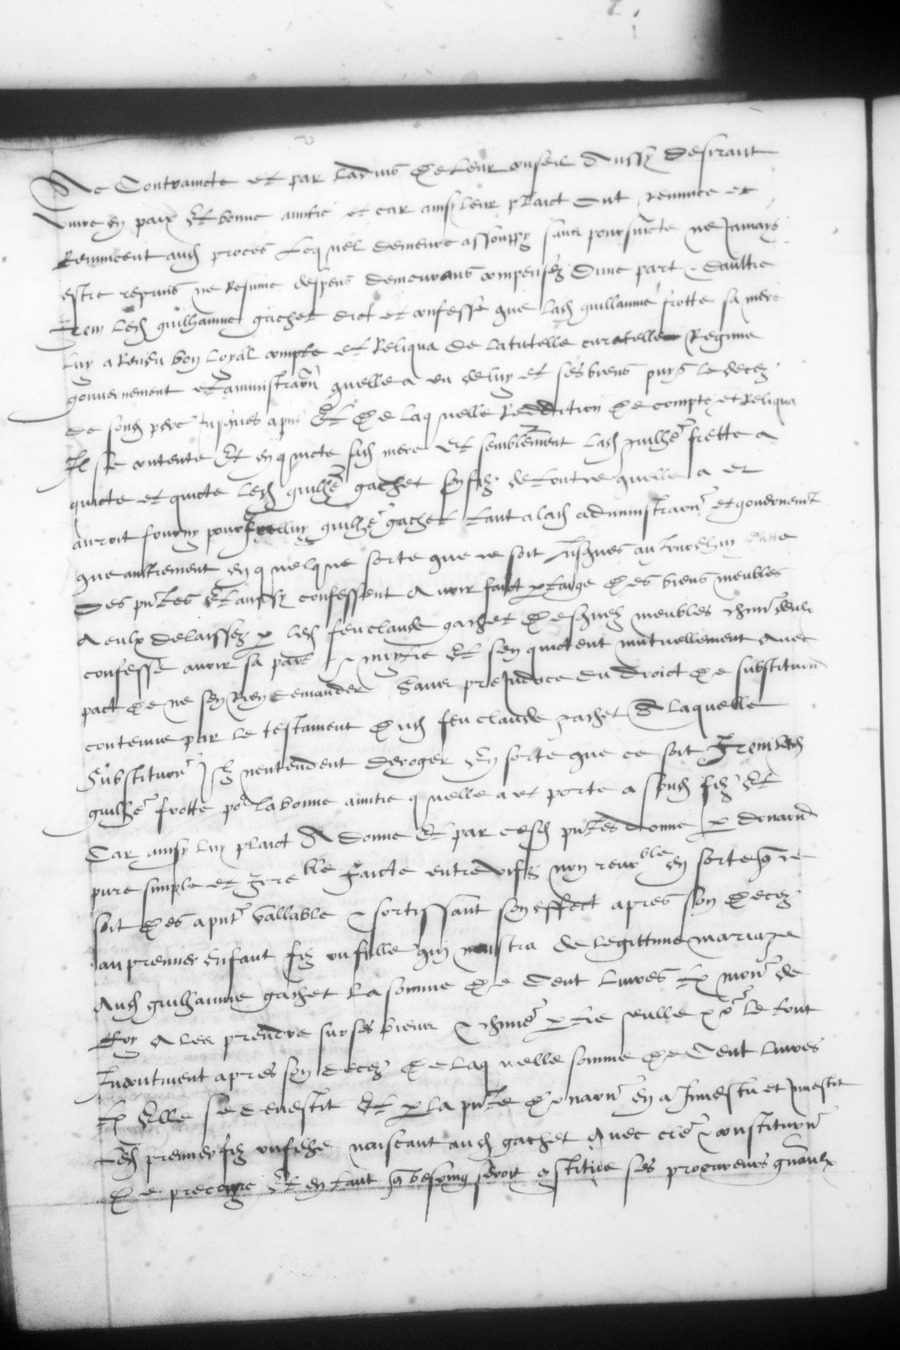 De Contraincte et par ladvis de leur conseil Aussy desirant
vivre en paix et bonne amitie et car ainsy leur plaict ont renonce et
Renuncent aud proces lequel demeure assouppy sans poursuicte ne Jamays
estre reprins ne Resume despens demeurans compensez Dune part & daultre
Item led guilhaume gachet dict et confesse que lad guillaume frotte sa mere
luy a Rendu bon loyal compte et Reliqua de la tutelle curatelle Regime
gouvernement et aministraon quelle a eu de luy et ses biens puys le decez
de sond pere jusques a pnt Et de laquelle Reddition de compte et Reliqua
Il se contente Et en quicte sad mere et semblement lad guilhe frotte a
quicte et quicte led guilhe gachet son filz de tout ce quelle a et
auroit fourny pour Icelluy guilhe gachet tant a lad administraon et gouvernemt
que aultrement en quelque sorte que ce soit Jusques au Jourdhuy datte
Des pntes Et ainsy confessent Avoir faict partaige des biens meubles
A eulx delaissez par led feu claude gachet desquelz meubles chacun deulx
confesse avoir sa part & moytie Et sen quictent mutuellement avec
pact de ne sen Rien demander Sauve prejudice du droict de substituon
contenue par le testament dud feu claude gachet A laquelle
Substituon Ilz nentendent deroger En sorte que ce soit Item lad
guilhe frotte por la bonne amitie quelle a et porte a sond filz Et
Car ainsy luy plaict A donne Et par cesd pntes donne par donaon
pure simple et Irreble Faicte entre vifz non revoble en sorte q ce
soit des a pnt vallable & sortissant son effect apres son decez
au premier Enfant filz ou fille qui naistra de legittime mariage
Aud guilhaume gachet La somme de Cent livres tz monoe de
Roy A les prendre sur ses biens & chune ptie seulle por le tout
Incontinent apres son decez de laquelle somme de Cent livres
tz Elle se devestit Et par la pnte donaon en a Investu et Investit
Led premier filz ou fille naiscant aud gachet Avec cle & constituon
De precaire Et en tant q besoing seroit constitue ses procureurs gnaulx